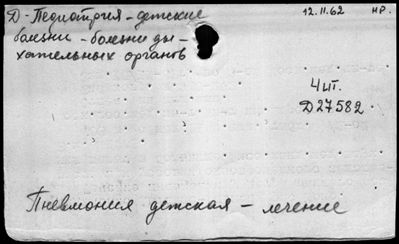 Д - Педиатрия - детские
болезни - болезни ды-
хательных органов
12.11.62 НР.
Чит.
Д27582
Пневмония детская - лечение